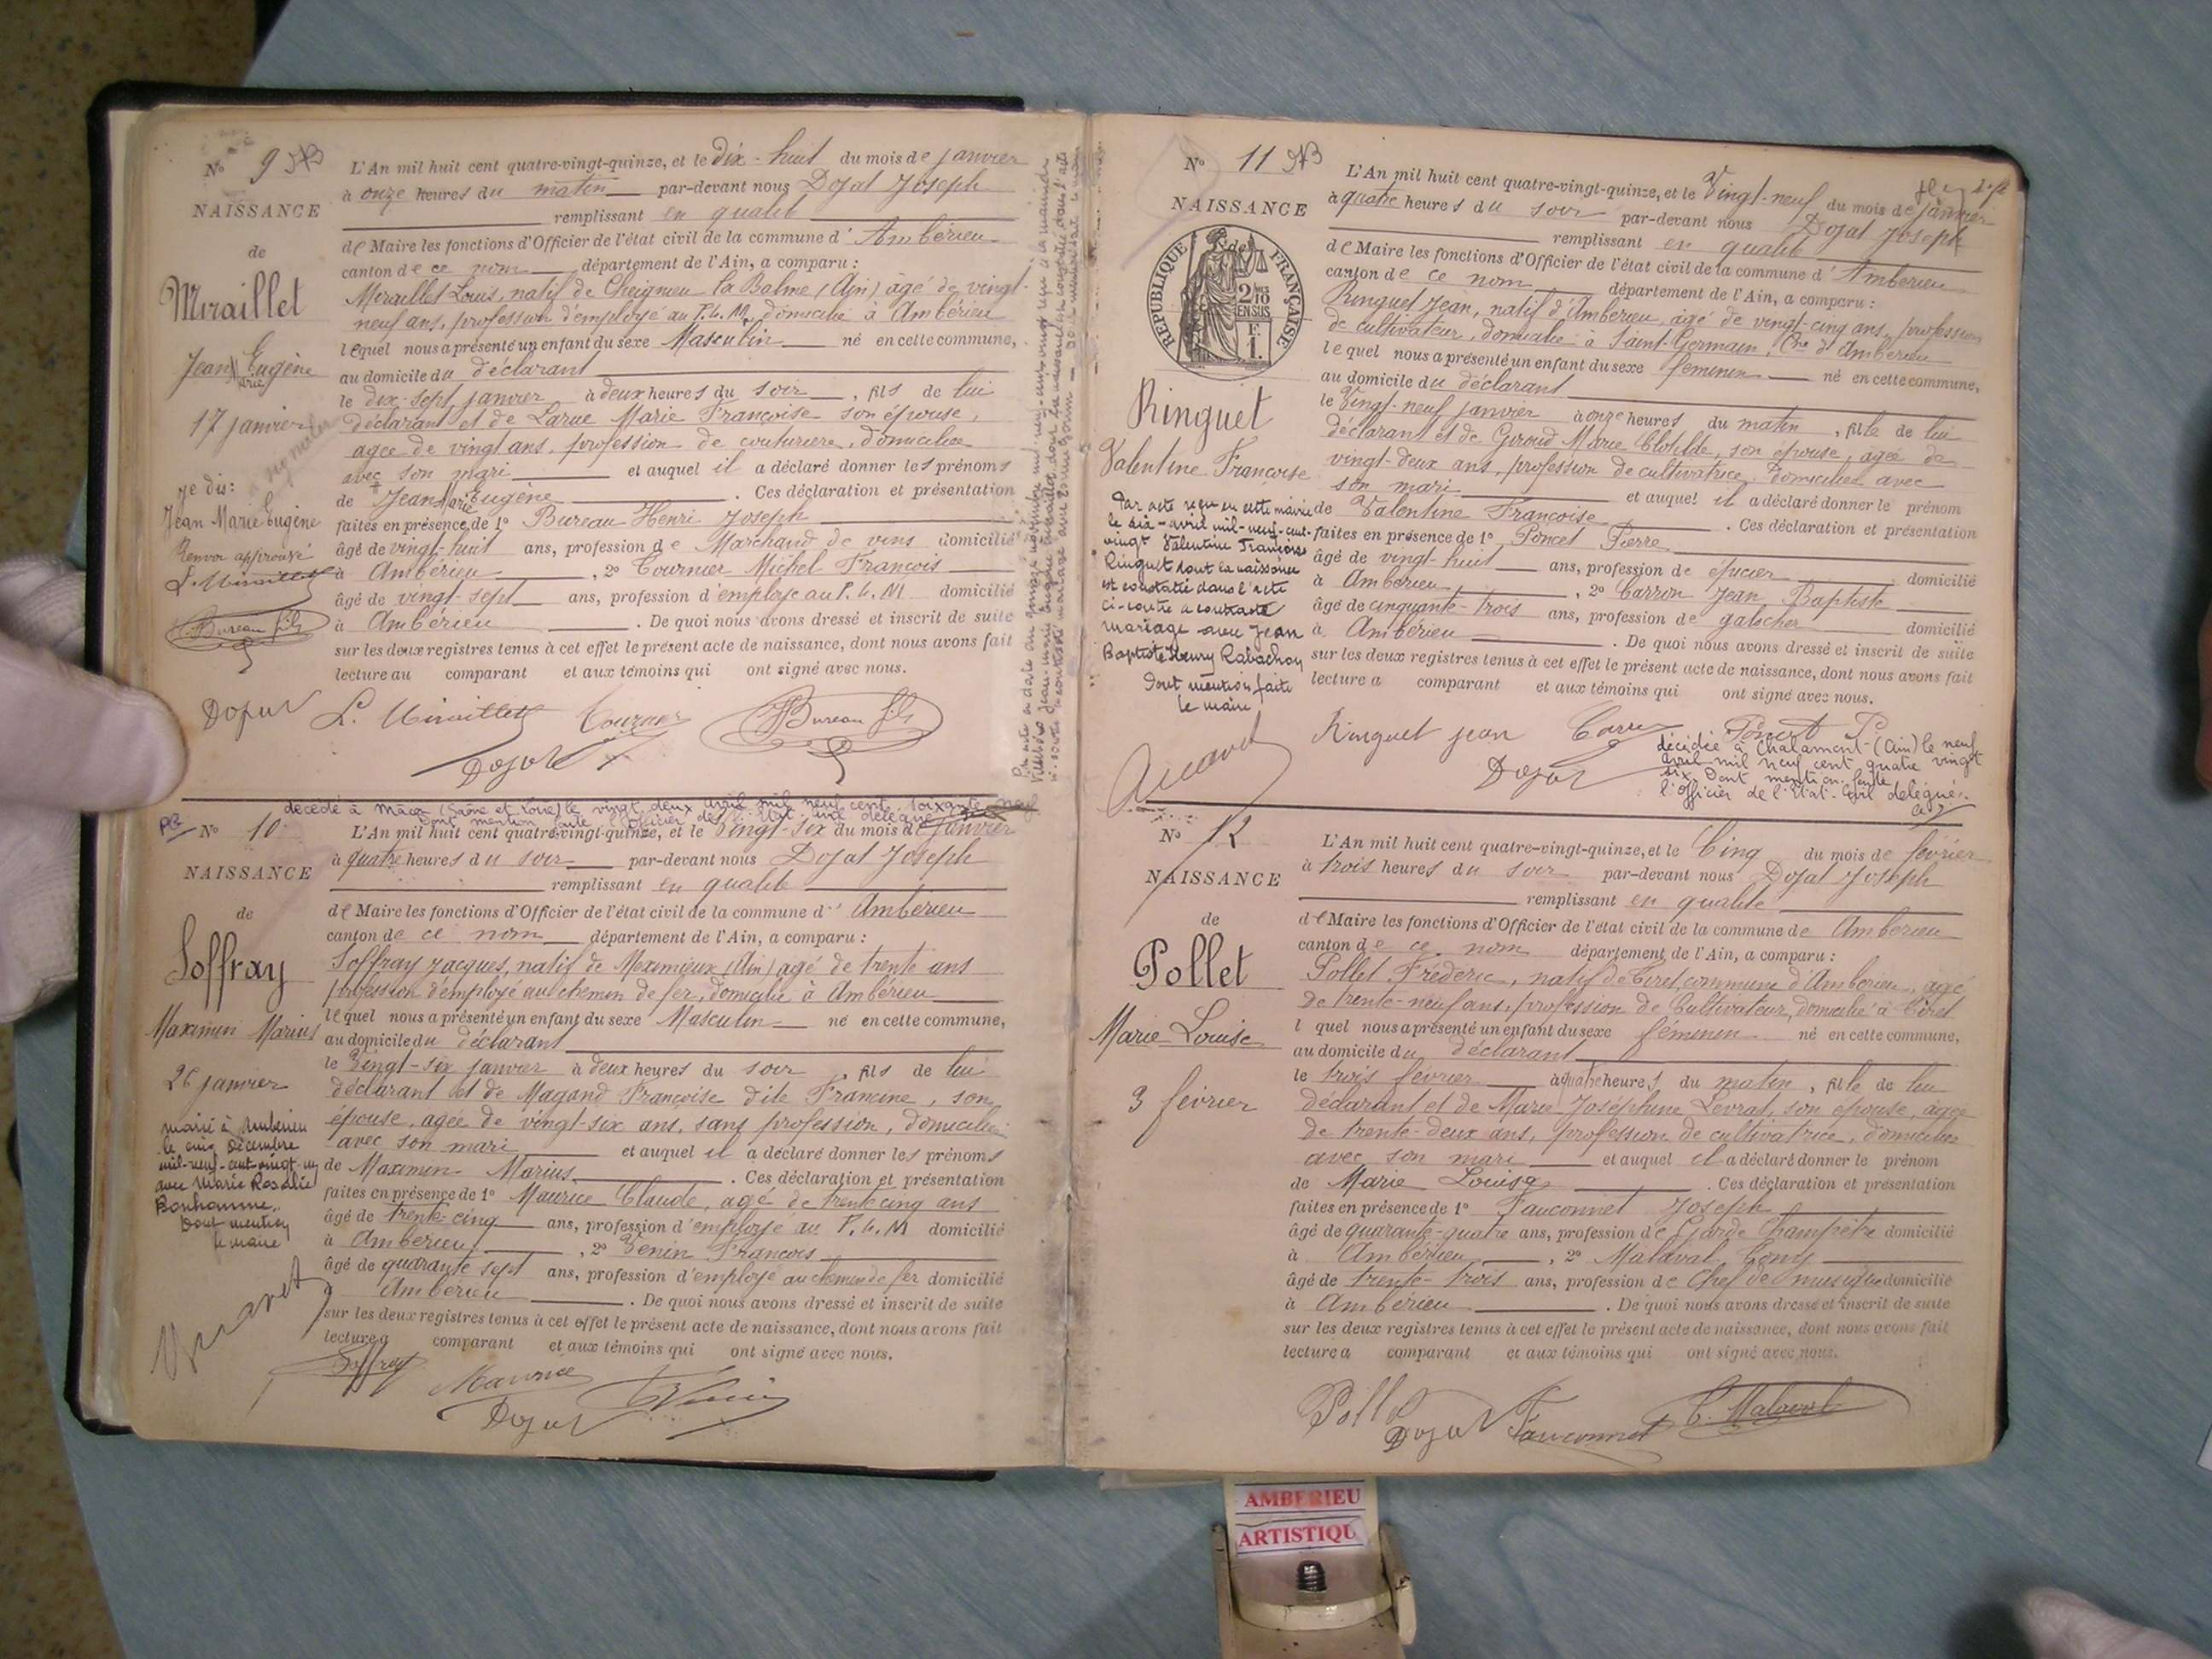 N° 9
NAISSANCE
de
Miraillet
Jean Marie Eugène
17 janvier
Je dis:
Jean Marie Eugène
Renvoi approuvé
L. Miraillet
Bureau fils
L'An mil huit cent quatre-vingt-quinze, et le Dix-huit du mois de janvier
à onze heures du matin par-devant nous Dojat Joseph
remplissant en qualité
de Maire les fonctions d'Officier de l'état civil de la commune d' Ambérieu
canton de ce nom département de l'Ain, a comparu :
Miraillet Louis, natif de Cheignieu la Balme (Ain) âgé de vingt-
neuf ans, profession d'employé au P.L.M, domicilié à Ambérieu
lequel nous a présenté un enfant du sexe Masculin né en cette commune,
au domicile du déclarant
le dix-sept janvier à deux heures du soir, fils de lui
déclarant et de Larue Marie Françoise son épouse,
agée de vingt ans, profession de couturière, domiciliée
avec son mari et auquel il a déclaré donner les prénoms
de Jean Marie Eugène. Ces déclaration et présentation
faites en présence de 1° Bureau Henri Joseph
âgé de vingt-huit ans, profession de Marchand de vins domicilié
à Ambérieu, 2° Tournier Michel François
âgé de vingt-sept ans, profession d'employé au P.L.M domicilié
à Ambérieu. De quoi nous avons dressé et inscrit de suite
sur les deux registres tenus à cet effet le présent acte de naissance, dont nous avons fait
lecture au comparant et aux témoins qui ont signé avec nous.
Dojat L. Miraillet Tournier Bureau fils
Dojat
décédé à Mâcon (Saône et Loire) le vingt deux avril mil neuf cent soixante
Dont mention faite l'Officier de l'Etat civil délégué
N° 10
NAISSANCE
de
Soffray
Maximin Marius
26 janvier
marié à Ambérieu
le cinq Décembre
mil-neuf-cent-vingt-un
avec Marie Rosalie
Bonhomme.
Dont mention
le maire
L'An mil huit cent quatre-vingt-quinze, et le Vingt-six du mois de janvier
à quatre heures du soir par-devant nous Dojat Joseph
remplissant en qualité
de Maire les fonctions d'Officier de l'état civil de la commune d' Ambérieu
canton de ce nom département de l'Ain, a comparu :
Soffray Jacques, natif de Meximieux (Ain) agé de trente ans
profession d'employé au chemin de fer, domicilié à Ambérieu
lequel nous a présenté un enfant du sexe Masculin né en cette commune,
au domicile du déclarant
le Vingt-six janvier à deux heures du soir, fils de lui
déclarant et de Magand Françoise dite Francine, son
épouse, agée de vingt-six ans, sans profession, domiciliée
avec son mari et auquel il a déclaré donner les prénoms
de Maximin Marius. Ces déclaration et présentation
faites en présence de 1° Maurice Claude, agé de trente cinq ans
âgé de trente-cinq ans, profession d'employé au P.L.M domicilié
à Ambérieu, 2° Venin François
âgé de quarante sept ans, profession d'employé au chemin de fer domicilié
à Ambérieu. De quoi nous avons dressé et inscrit de suite
sur les deux registres tenus à cet effet le présent acte de naissance, dont nous avons fait
lecture a comparant et aux témoins qui ont signé avec nous.
Soffray Maurice Venin
Dojat
N° 11
NAISSANCE
de
RÉPUBLIQUE FRANÇAISE
2/10 EN SUS
Ringuet
Valentine Françoise
Par acte reçu en cette mairie
le dix-avril mil-neuf-cent-
vingt Valentine Françoise
Ringuet dont la naissance
est constatée dans l'acte
ci-contre a contracté
mariage avec Jean
Baptiste Henry Rabachon
Dont mention faite
le maire
L'An mil huit cent quatre-vingt-quinze, et le Vingt-neuf du mois de janvier
à quatre heures du soir par-devant nous Dojat Joseph
remplissant en qualité
de Maire les fonctions d'Officier de l'état civil de la commune d' Ambérieu
canton de ce nom département de l'Ain, a comparu :
Ringuet Jean, natif d'Ambérieu, âgé de vingt-cinq ans, profession
de cultivateur, domicilié à Saint-Germain, Cne d'Ambérieu
lequel nous a présenté un enfant du sexe féminin né en cette commune,
au domicile du déclarant
le Vingt-neuf janvier à onze heures du matin, fille de lui
déclarant et de Giroud Marie Clotilde, son épouse, agée de
vingt-deux ans, profession de cultivatrice, domiciliée avec
son mari et auquel il a déclaré donner le prénom
de Valentine Françoise. Ces déclaration et présentation
faites en présence de 1° Poncet Pierre
âgé de vingt-huit ans, profession de épicier domicilié
à Ambérieu, 2° Carron Jean Baptiste
âgé de cinquante-trois ans, profession de galocher domicilié
à Ambérieu. De quoi nous avons dressé et inscrit de suite
sur les deux registres tenus à cet effet le présent acte de naissance, dont nous avons fait
lecture a comparant et aux témoins qui ont signé avec nous.
Ringuet jean Carron Poncet P
Dojat
décédée à Chalamont (Ain) le neuf
avril mil neuf cent quatre vingt
six. Dont mention faite
l'officier de l'Etat-Civil délégué.
N° 12
NAISSANCE
de
Pollet
Marie Louise
3 février
L'An mil huit cent quatre-vingt-quinze, et le Cinq du mois de février
à trois heures du soir par-devant nous Dojat Joseph
remplissant en qualité
de Maire les fonctions d'Officier de l'état civil de la commune de Ambérieu
canton de ce nom département de l'Ain, a comparu :
Pollet Fréderic, natif de Tiret, commune d'Ambérieu, agé
de trente-neuf ans, profession de Cultivateur, domicilié à Tiret
l quel nous a présenté un enfant du sexe féminin né en cette commune,
au domicile du déclarant
le trois février à quatre heures du matin, fille de lui
déclarant et de Marie Joséphine Levrat, son épouse, agée
de trente-deux ans, profession de cultivatrice, domiciliée
avec son mari et auquel il a déclaré donner le prénom
de Marie Louise. Ces déclaration et présentation
faites en présence de 1° Fauconnet Joseph
âgé de quarante-quatre ans, profession de Garde Champêtre domicilié
à Ambérieu, 2° Malaval Cony
âgé de trente-trois ans, profession de Chef de musique domicilié
à Ambérieu. De quoi nous avons dressé et inscrit de suite
sur les deux registres tenus à cet effet le présent acte de naissance, dont nous avons fait
lecture a comparant et aux témoins qui ont signé avec nous.
Pollet Dojat Fauconnet C. Malaval
AMBERIEU
ARTISTIQU